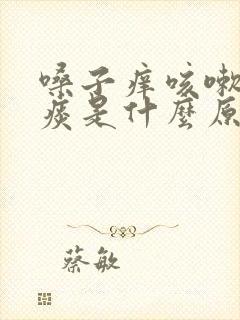 嗓子痒咳嗽
痰是什麽原
蔡敏